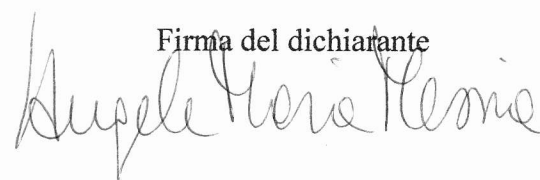 Firma del dichiarante
Angela Maria Messina